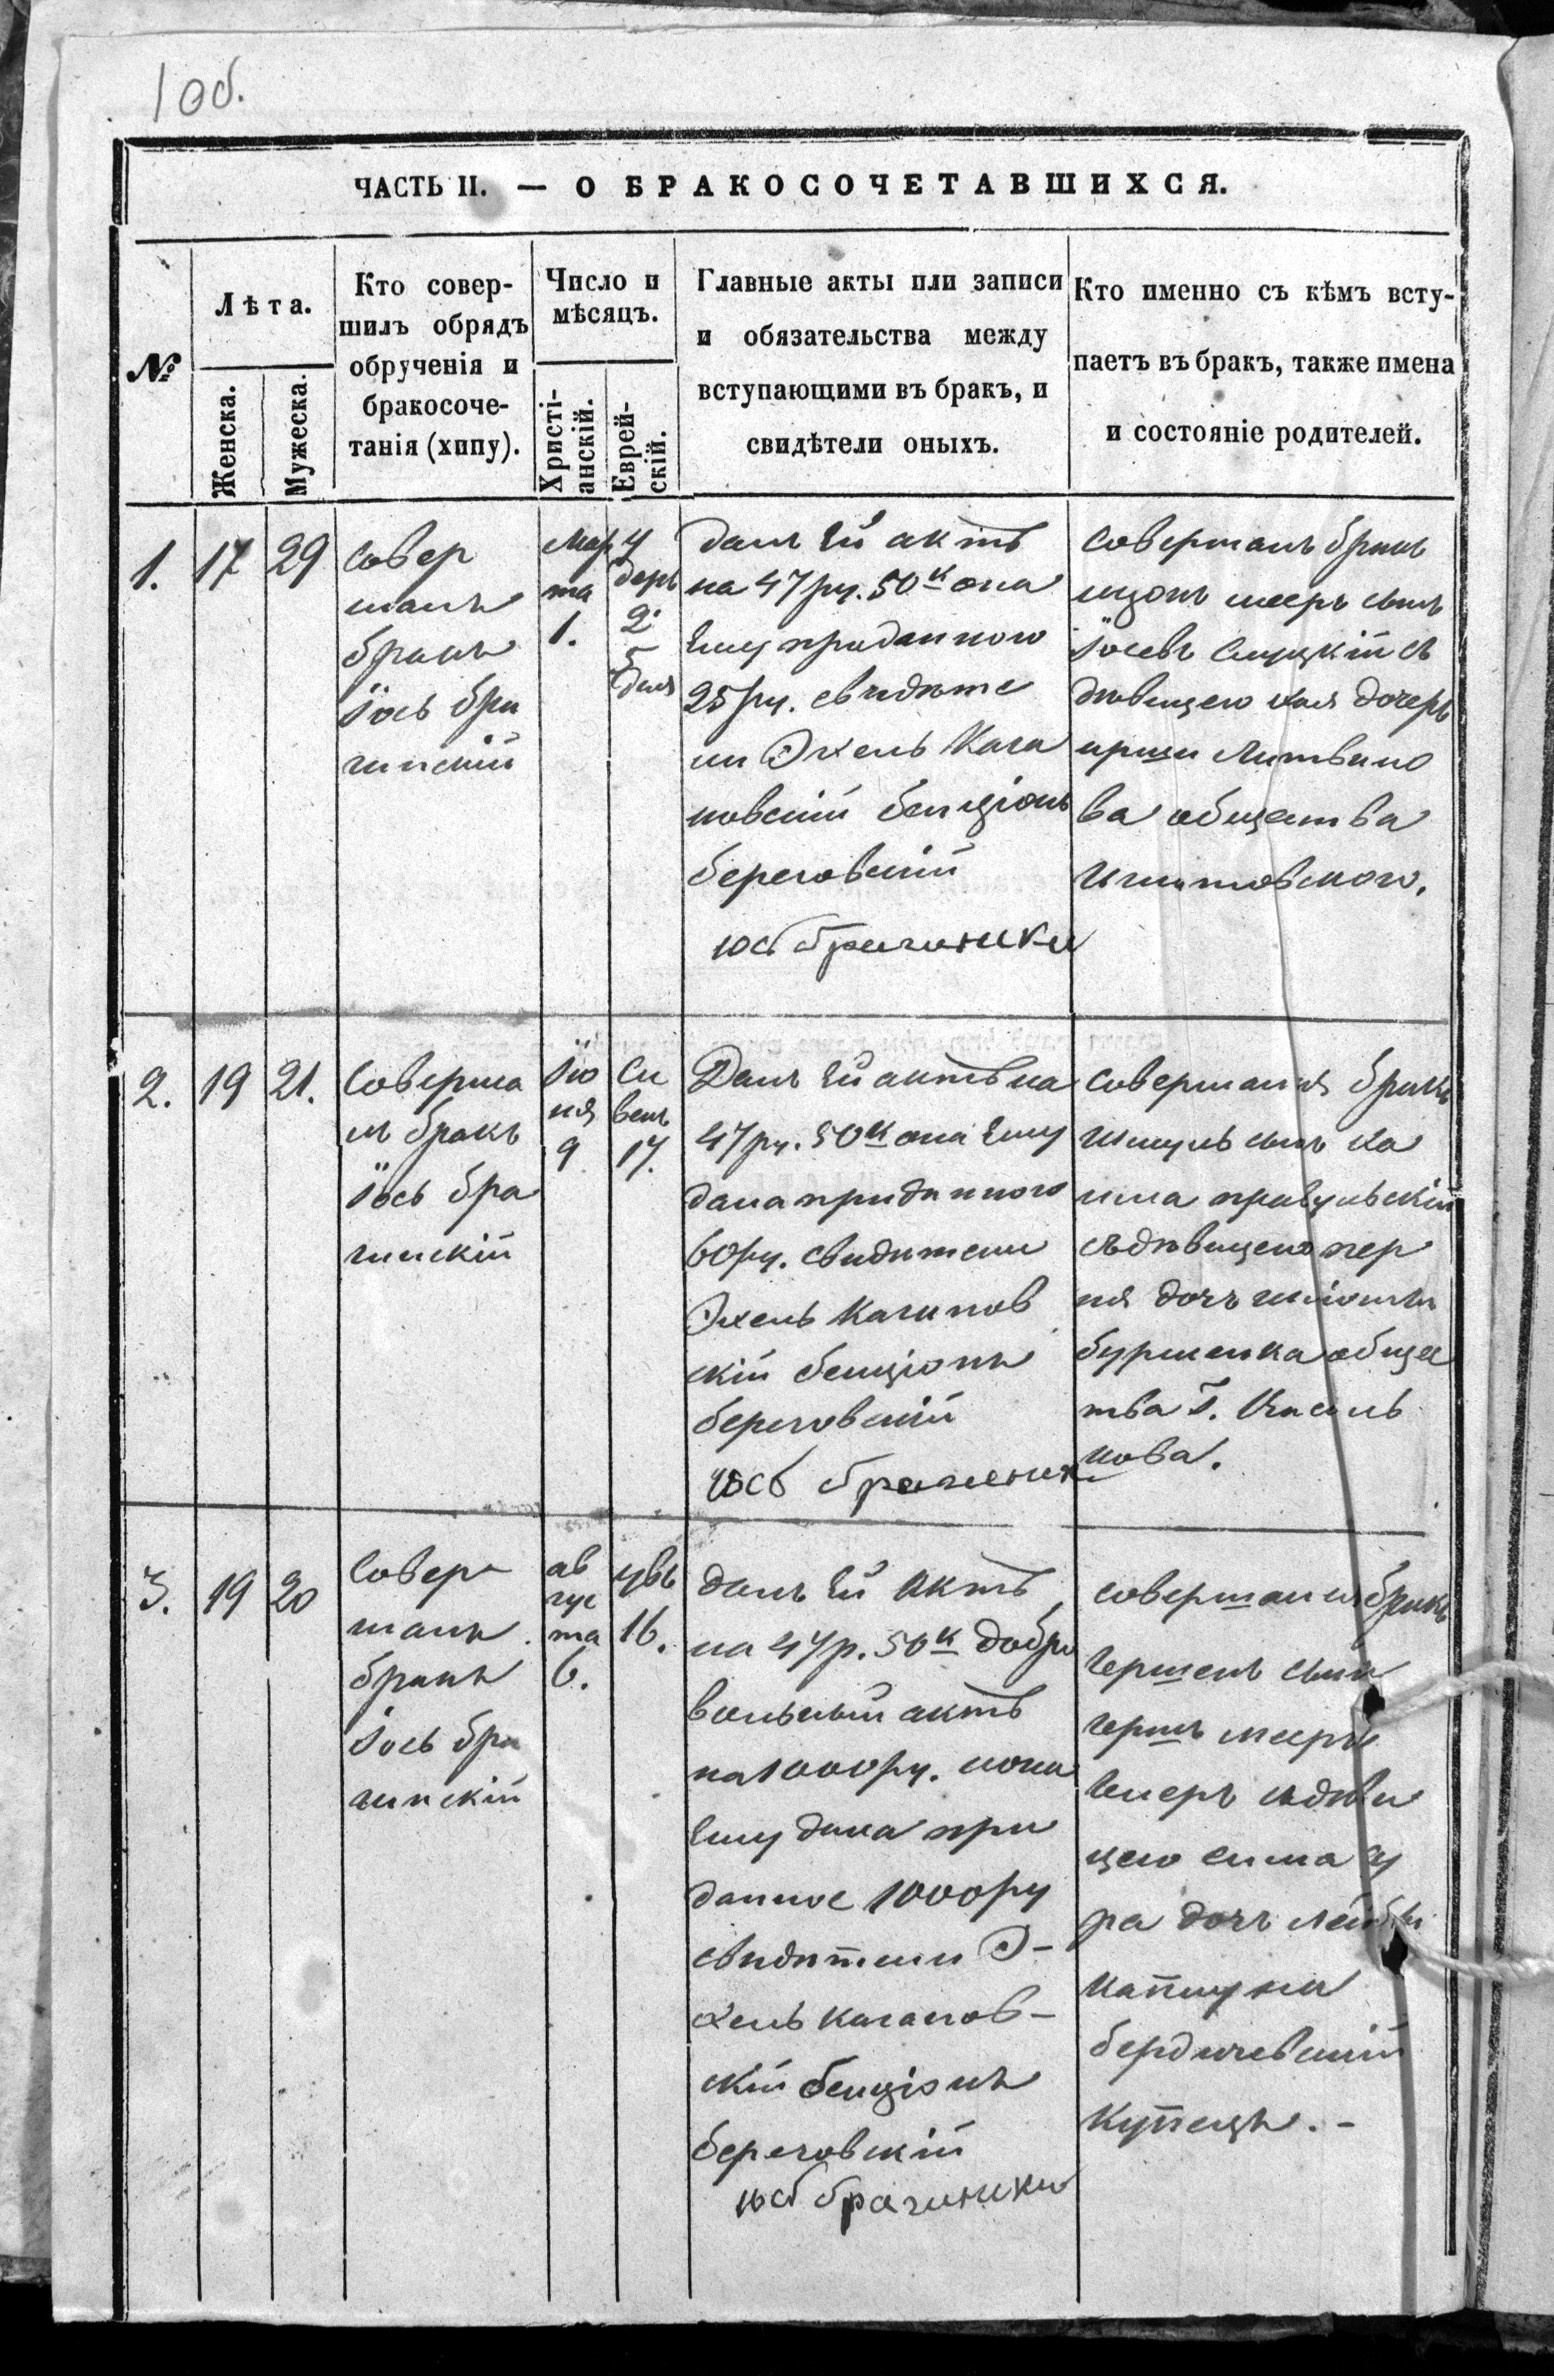 1 об.
ЧАСТЬ II. — О БРАКОСОЧЕТАВШИХСЯ.
№
Лѣта.
Женска.
Мужеска.
Кто совер-
шилъ обрядъ
обрученія и
бракосоче-
танія (хипу).
Число и
мѣсяцъ.
Христі-
анскій.
Еврей-
скій.
Главные акты или записи
и обязательства между
вступающими въ бракъ, и
свидѣтели оныхъ.
Кто именно съ кѣмъ всту-
паетъ въ бракъ, также имена
и состояніе родителей.
1.
17
29
Совер
шалъ
бракъ
Іось бра
гинскій
Мар
та
1.
2
далъ Ей актъ
на 47 ру. 50 к она
Ему приданного
25 ру. свидѣте
ли Эхель Кага
новскій бенціонъ
береговскій
совершалъ бракъ
сынъ
съ
дѣвицею хая дочерь
Литвино
ва общества
2.
19
21.
Соверша
лъ бракъ
Іось бра
гинскій
Ію
ня
9
Си
венъ
17.
Далъ Ей актъ на
47 ру. 50 к она Ему
дала приданного
60 ру. свидѣтели
Эхель Каганов
скій бенціонъ
береговскій
совершался бракъ
Шмуль сынъ ха
има
съ дѣвицею пер
ля дочь
общес
тва г.
кова.
3.
19
20
Совер
шалъ
бракъ
Іось бра
гинскій
ав
гус
та
6.
увъ
16.
далъ Ей Актъ
на 47 р. 50 к добро
вольный актъ
на 1000 ру. и она
Ему дала при
данное 1000 ру
свидѣтели Э-
хель каганов-
скій бенціонъ
береговскій
совершался бракъ
Гершель сынъ
съ дѣви
цею сима су
ра дочь лейбы
бердичевскій
Купецъ. -